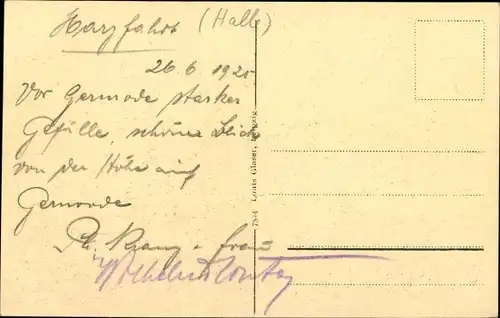 Harzfahrt (Halle)
26.6.1925
Vor Gernrode starker
Gefälle, schöner Blick
von der Höhe auf
Gernrode
Frau
Wilhelm
7834 Louis Glaser, Leipzig